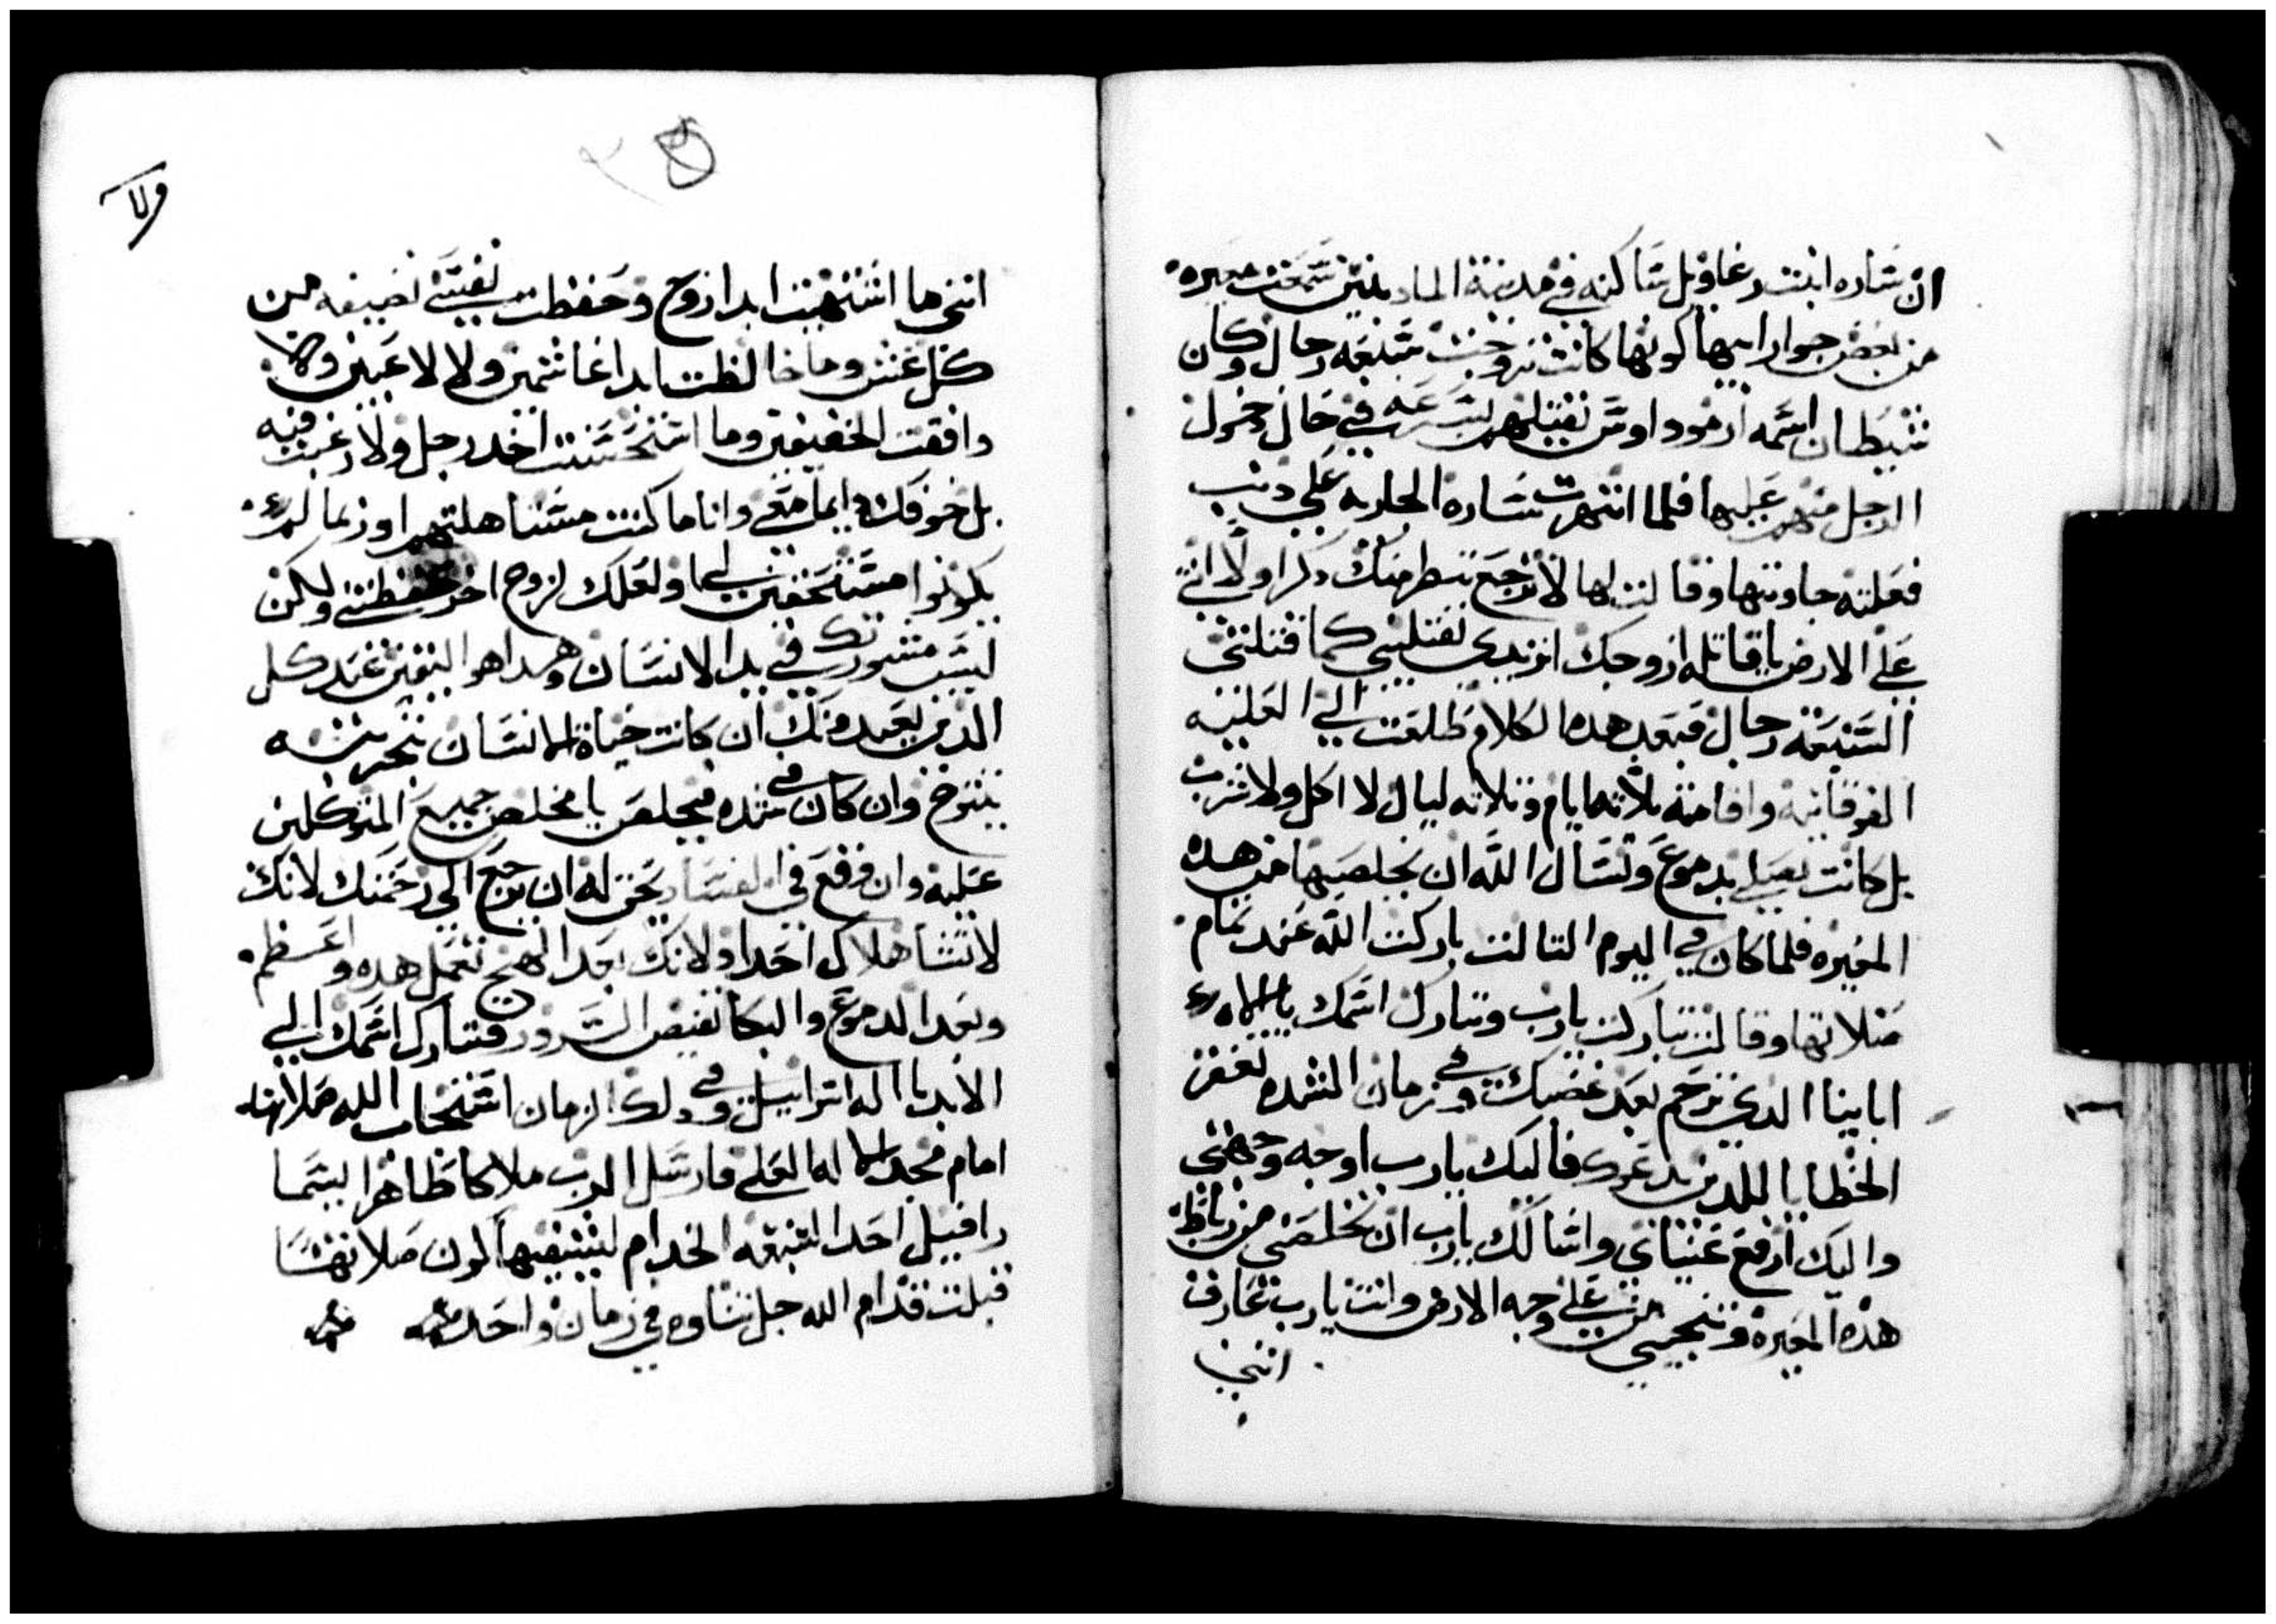 ان ساره ابنت رغاويل ساكنه في مدينة المادينين سمعت معيره
من بعض جوار ابيها كونها كانت تزوجت سبعه رجال وكان
شيطان اسمه ازموداوس يقتلهم بسرعه في حال دخول
الرجل منهم عليها فلما انتهرت ساره الجاريه علي دنب
فعلته جاوبتها وقالت لها لا نرجع ننظر منك دكرا ولا انثي
علي الارض يا قاتله ازوجك اتريدي تقتليني كما قتلتي
السبعه رجال فبعد هده الكلام طلعت الي العليه
الفوقانيه واقامت ثلاثه ايام وثلاثه ليال لا اكل ولا شرب
بل كانت تصلي بدموع وتسال الله ان يخلصها من هده
المعيره فلما كان في اليوم التالت باركت الله عند تمام
صلاتها وقالت تباركت يارب وتبارك اسمك يا الاه
ابابنا الدي ترحم بعد غضبك وفي زمان الشده تغفر
الخطايا للدين يدعوك فاليك يارب اوجه وجهي
واليك ارفع عيناي واسالك يارب ان تخلصني من رباط
هذه المعيره وتنجيني من علي وجه الارض وانت يارب عارف
انني
ولا
٢٥
انني ما اشتهيت ابدا زوج وحفظت نفسي نضيفه من
كل غش وما خالطت ابدا غاشمين ولا لاعبين ولا
وافقت الخفيفين وما استحسنت اخد رجل ولا رغبت فيه
بل خوفك دايما معي وانا ما كنت مستاهلتهم او ربما لم
يكونوا مستحقين لي ولعلك لزوج اخر حفظتني ولكن
ليست مشورتك في يد الانسان وهدا هو اليقين عند كل
الدين يعبدونك ان كانت حياة الانسان بتجربته
يتتوج وان كان في شده فيخلص يا مخلص جميع المتوكلين
عليه وان وقع في الفساد يحق له ان يرجع الي رحمتك لانك
لا تشا هلاك احدا ولانك بعد الهيج تعمل هدو وعظم
وبعد الدموع والبكا تفيض السرور فتبارك اسمك الي
الابد يا اله اسراييل وفي دلك الزمان استجاب الله صلاتها
امام مجد الاله العلي فارسل الرب ملاكا طاهرا يسما
رافييل احد السبعه الخدام ليشفيها لون صلاتهما
قبلت قدام الله جل تناوه في زمان واحد